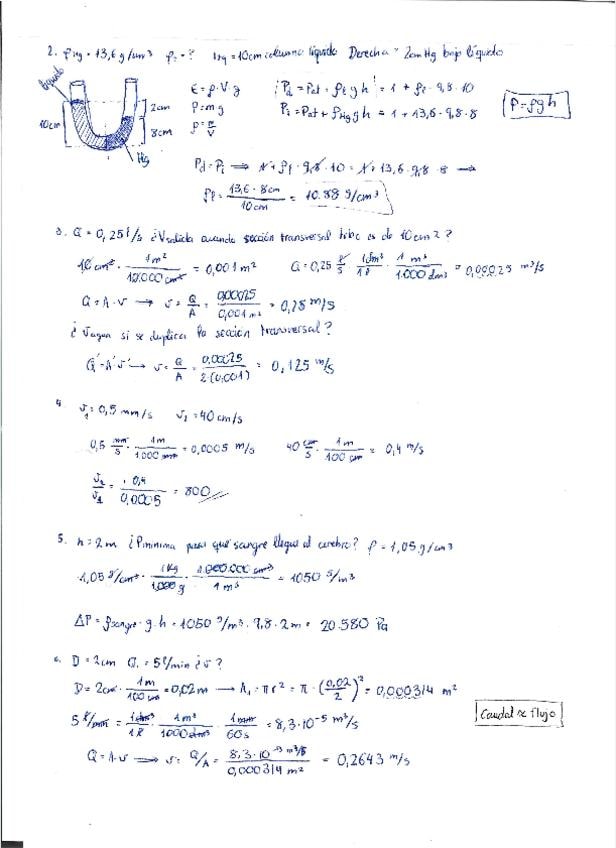 2. ρHg = 13,6 g/cm³ ρl = ? 10cm columna líquido Derecha = 2cm Hg bajo líquido
líquido
10cm
2cm
8cm
Hg
E = ρ·V·g
P = m g
ρ = m/V
Pd = Pat = ρl g h = 1 + ρl · 9,8 · 10
Pi = Pat + ρHg g h = 1 + 13,6 · 9,8 · 8
P = ρgh
Pd = Pi ⟹ 1 + ρl · 9,8 · 10 = 1 + 13,6 · 9,8 · 8 →
ρl = 13,6 · 8cm / 10cm = 10.88 g/cm³
3. Q = 0,25 l/s ¿V salida cuando sección transversal tubo es de 10cm2?
10 cm² · 1m² / 10.000 cm² = 0,001 m² Q = 0,25 l/s · 1dm³/1l · 1 m³/1.000 dm³ = 0,00025 m³/s
Q = A·v → v = Q/A = 0,00025 / 0,001 m² = 0,25 m/s
¿V agua si se duplica la sección transversal?
Q' = A'v' → v = Q/A = 0,00025 / 2·(0,001) = 0,125 m/s
4. v₁ = 0,5 mm/s v₂ = 40 cm/s
0,5 mm/s · 1m/1000 mm = 0,0005 m/s 40 cm/s · 1m/100 cm = 0,4 m/s
v₂/v₁ = 0,4 / 0,0005 = 800
5. h = 2m ¿P mínima para que sangre llegue al cerebro? ρ = 1,05 g/cm³
1,05 g/cm³ · 1Kg/1.000 g · 1.000.000 cm³/1 m³ = 1050 g/m³
ΔP = ρsangre · g · h = 1050 g/m³ · 9,8 · 2m = 20.580 Pa
6. D = 2cm Q = 5 l/min ¿v?
D = 2cm · 1m/100 cm = 0,02m → A₁ = π r² = π · (0,02/2)² = 0,000314 m²
5 l/min = 1dm³/1l · 1m³/1000dm³ · 1min/60s = 8,3·10⁻⁵ m³/s
Caudal = flujo
Q = A·v ⟹ v = Q/A = 8,3·10⁻⁵ m³/s / 0,000314 m² = 0,2643 m/s